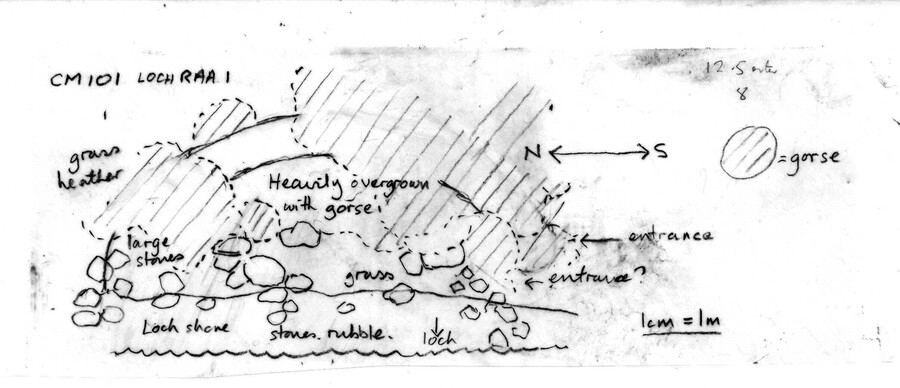 CM101 LOCH RAA 1
12.5
8
grass
heather
N S
= gorse
Heavily overgrown
with gorse!
large
stones
entrance
grass
entrance?
Loch shore
stones. rubble.
loch
1cm = 1m